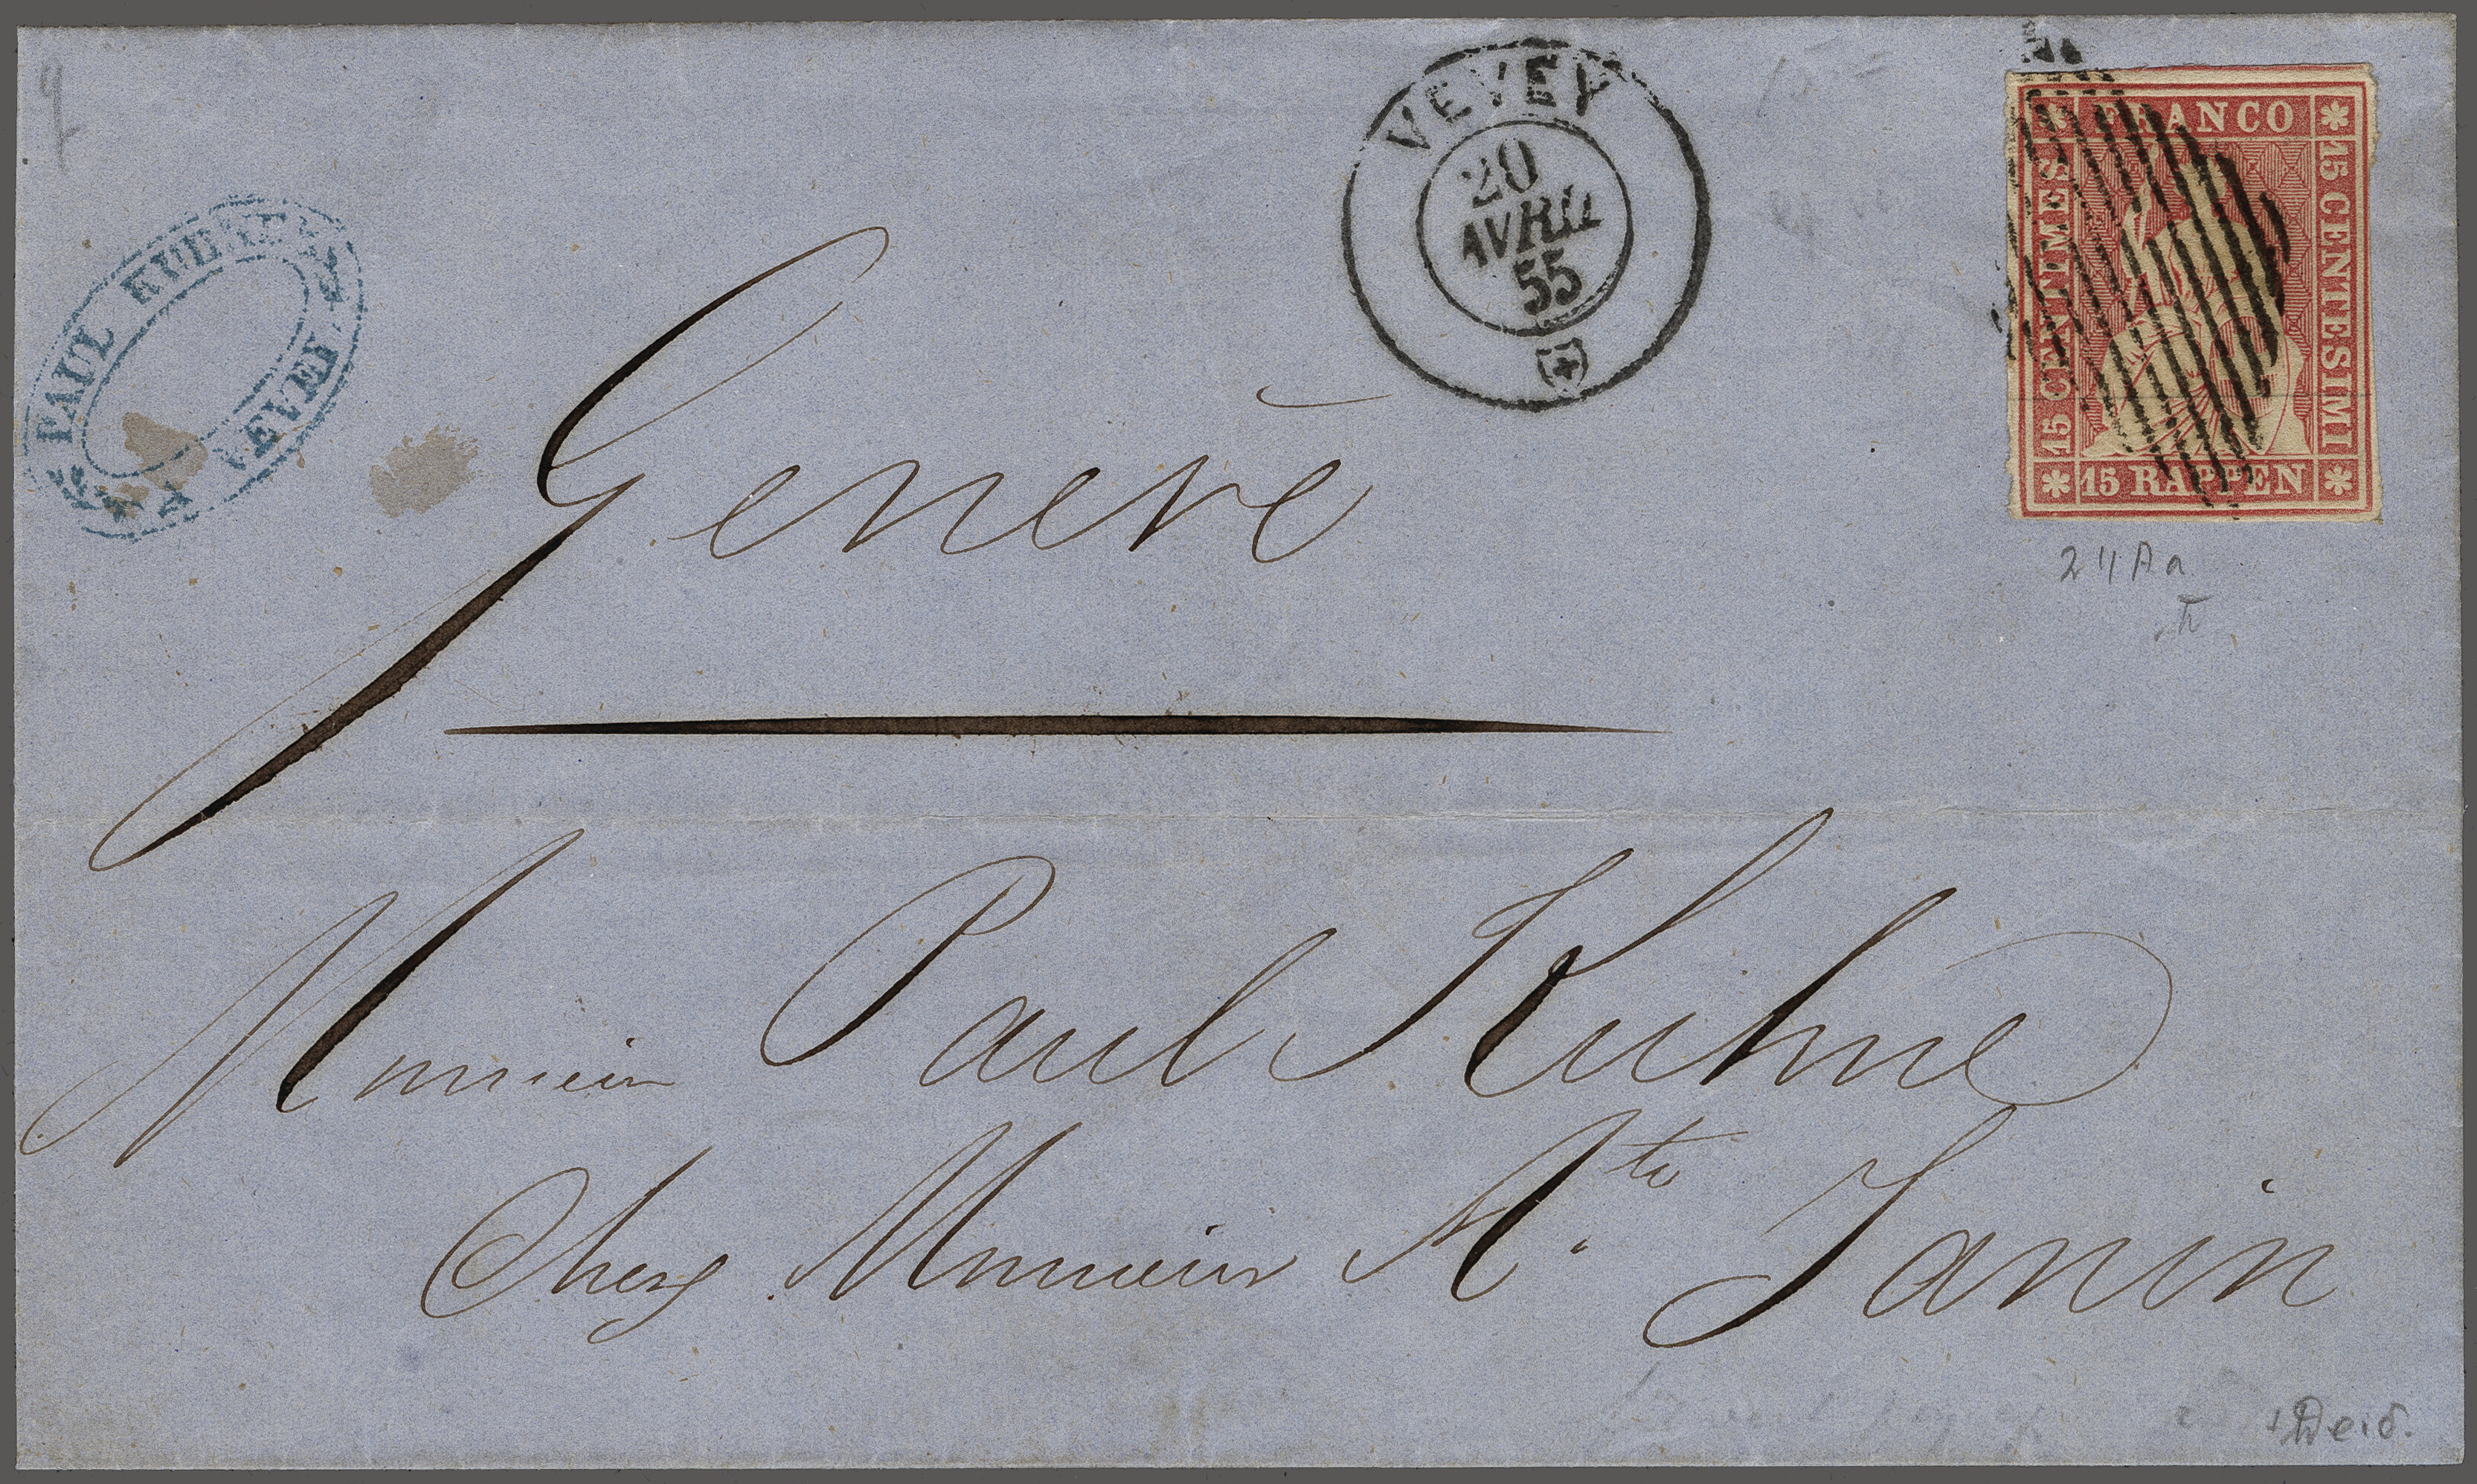 PAUL
VEVEY
VEVEY
20
AVRIL
55
FRANCO
15 CENTIMES
15 CENTESIMI
15 RAPPEN
Genève
24Aa
Monsieur Paul Kuhne
Chez Monsieur Ate. Janin